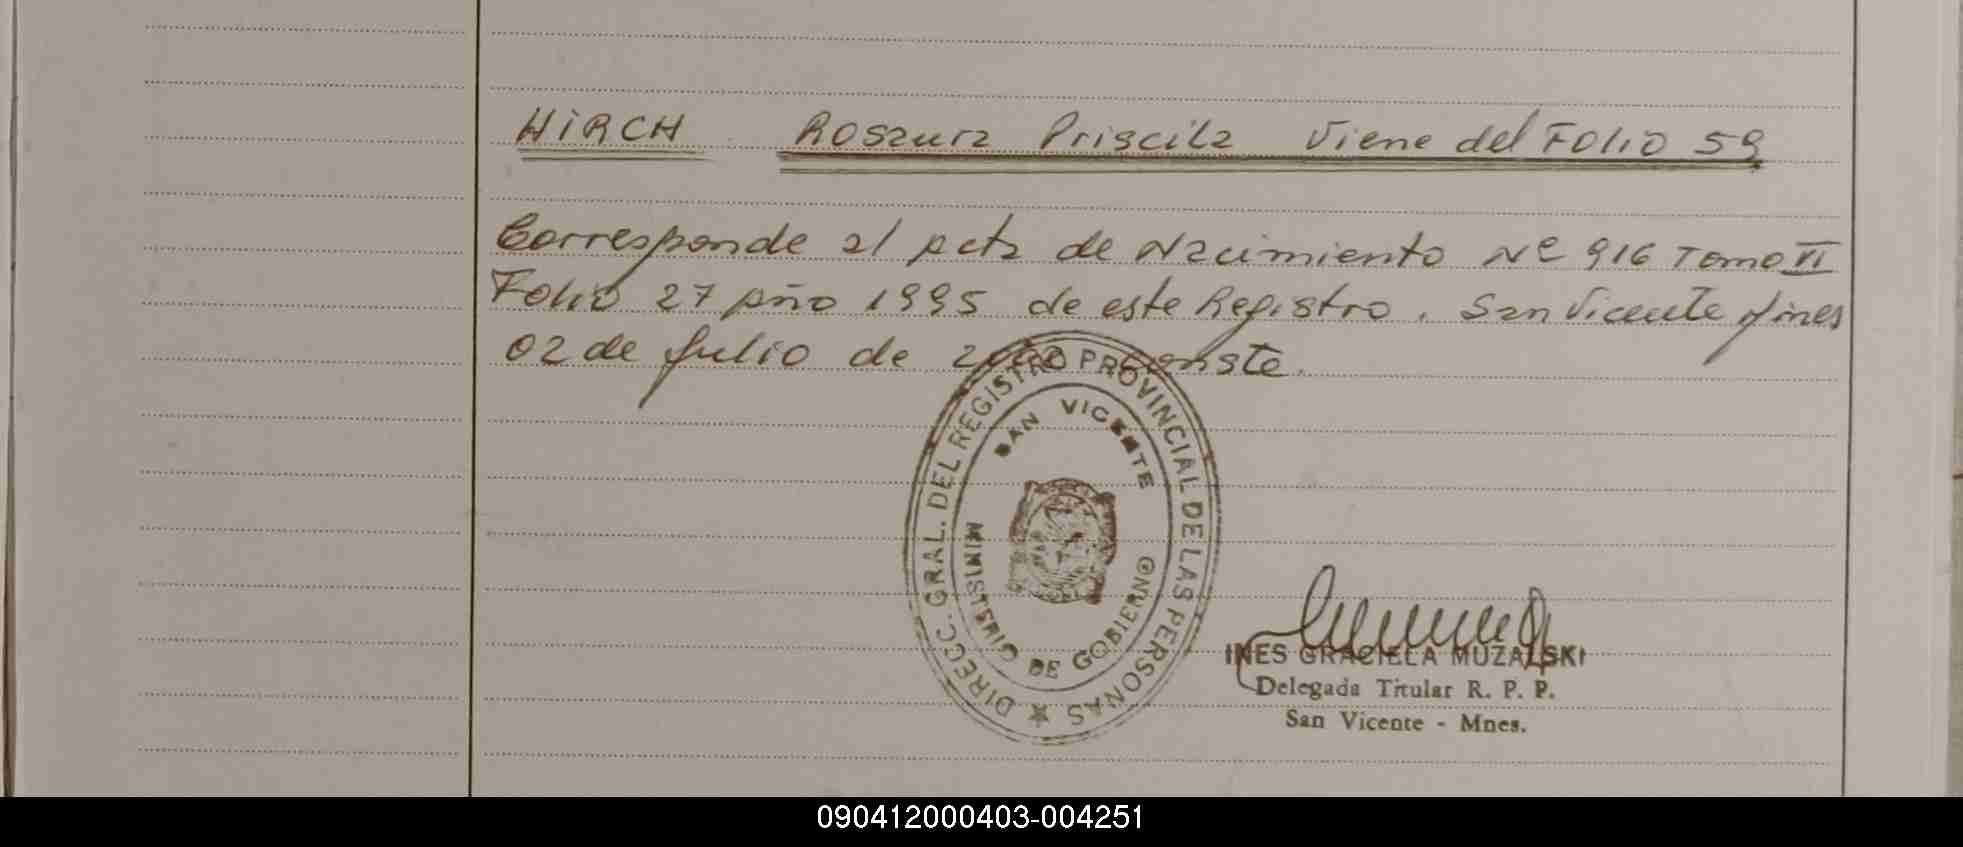 HIRCH Rosaura Priscila Viene del FOLIO 59
Corresponde al Acta de Nacimiento Nº 916 Tomo VI
Folio 27 Año 1995 de este Registro. San Vicente Mnes
02 de Julio de Conste.
DIRECC. GRAL. DEL REGISTRO PROVINCIAL DE LAS PERSONAS
SAN VICENTE
MINISTERIO DE GOBIERNO
INES GRACIELA MUZALSKI
Delegada Titular R. P. P.
San Vicente - Mnes.
090412000403-004251